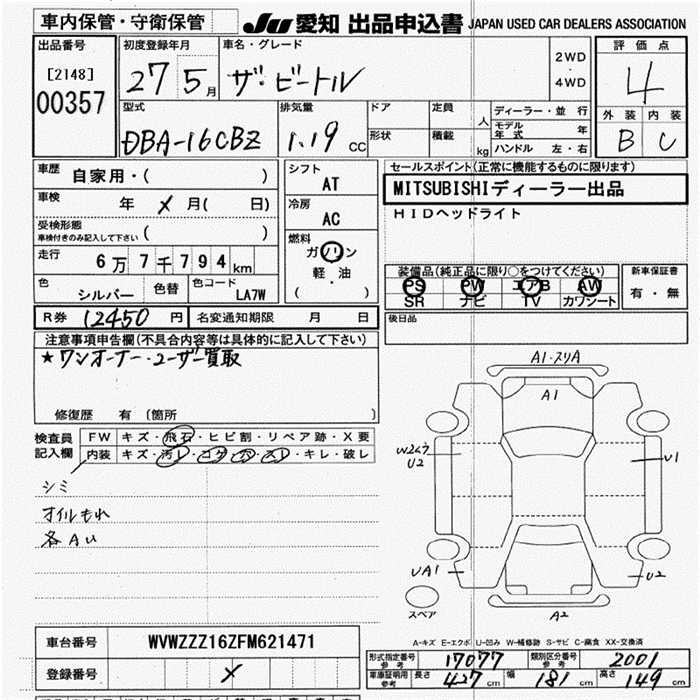 車内保管・守衛保管
JU 愛知 出品申込書 JAPAN USED CAR DEALERS ASSOCIATION
出品番号
[2148]
00357
初度登録年月
27 5月
車名・グレード
ザ・ビートル
2WD
・
4WD
評価点
4
外装 内装
B C
型式
DBA-16CBZ
排気量
1.19 CC
ドア
形状
定員
人
積載
kg
ディーラー・並行
モデル年式 年
ハンドル 左・右
車歴
自家用・( )
車検
年 × 月( 日)
受検形態
車検付きのみ記入して下さい ( )
走行
6万7千794km
色
シルバー
色替
色コード
LA7W
シフト
AT
冷房
AC
燃料
ガソリン
軽・油
( )
セールスポイント(正常に機能するものに限ります)
MITSUBISHIディーラー出品
HIDヘッドライト
装備品(純正品に限り○をつけてください)
PS PW エアB AW
SR ナビ TV カワシート
新車保証書
有・無
R券 12450 円
名変通知期限 月 日
後日品
注意事項申告欄(不具合内容等は具体的に記入して下さい)
★ワンオーナー・ユーザー買取
修復歴 有 (箇所 )
検査員
記入欄
FW キズ・飛石・ヒビ割・リペア跡・X要
内装 キズ・汚レ・コゲ・穴・スレ・キレ・破レ
シミ
オイルもれ
各AU
A1・スリA
A1
U2
U1
UA1
U2
スペア
A2
A-キズ E-エクボ U-凹み W-補修跡 S-サビ C-腐食 XX-交換済
車台番号
WVWZZZ16ZFM621471
登録番号
×
形式指定番号
参考
17077
類別区分番号
参考
2001
車庫証明用
参考
長さ 427 cm
幅 181 cm
高さ 149 cm